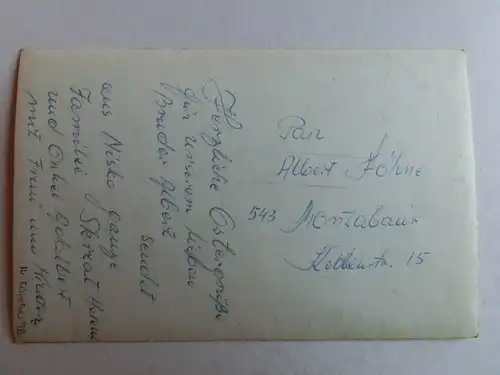 Herzliche Ostergrüße
für unserem lieben
Bruder Albert
sendet
aus Nisko ganze
Familie Skrzat
und Onkel
mit Frau und Kinder
Pan
Albert Höhne
543 Montabaur
Kolbenstr. 15